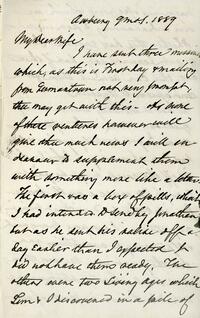 Awbury 9 mo 1. 1889
My Dear Wife
I have sent three missives
which, as this is First day & mailing
from Germantown not very prompt,
thee may get with this - As none
of these ventures however will
give thee much news I will en-
deavour to supplement them
with something more like a letter.
The first was a box of pills, which
I had intended to send by Jonathan
but as he sent his valise off a
day earlier than I expected I
did not have them ready. The
others were two Living ages which
& I discovered in a pile of